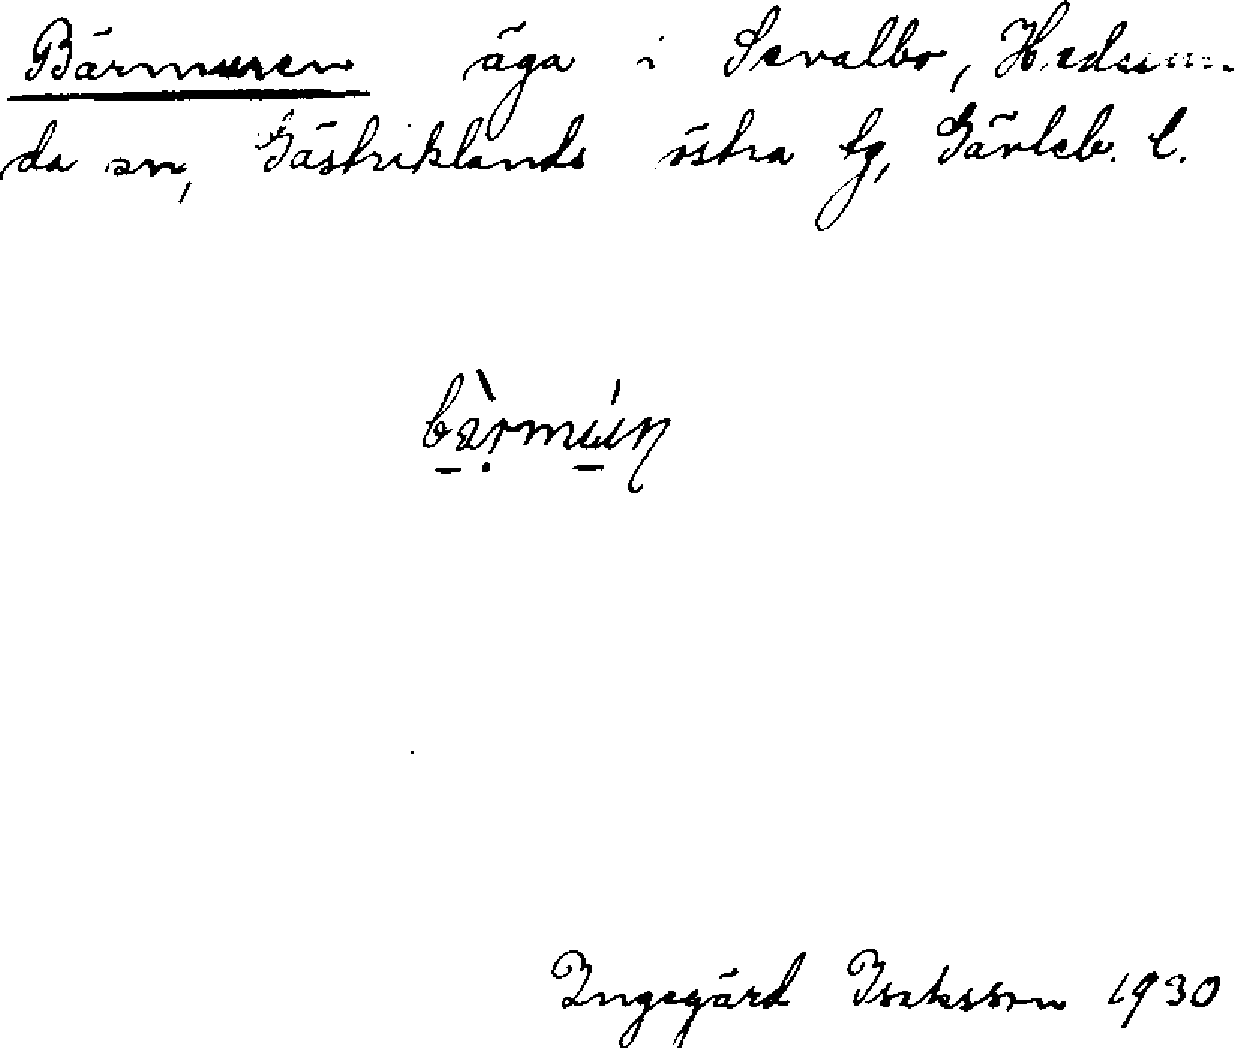 Bärmuren äga i Sevallbo, Hedesun-
da sn, Gästriklands östra tg, Gävleb. l.
bä̀rmúın
Ingegärd Isaksson 1930